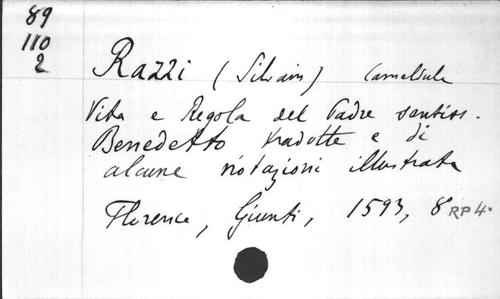 89
110
2
Razzi (Silvain) Camaldule
Vita e Regola del Padre santiss.
Benedetto tradotte e di
alcune notazioni illustrata
Florence, Giunti, 1593, 8° RP 4.